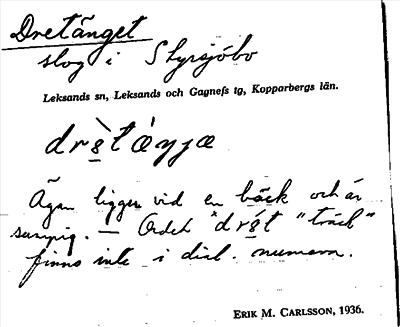 Dretänget
slog i Styrsjöbo
Leksands sn, Leksands och Gagnefs tg, Kopparbergs län.
drètæ̀ŋjæ
Ägan ligger vid en bäck och är
sumpig. — Ordet *drét "träck"
finns inte i dial. numera.
ERIK M. CARLSSON, 1936.